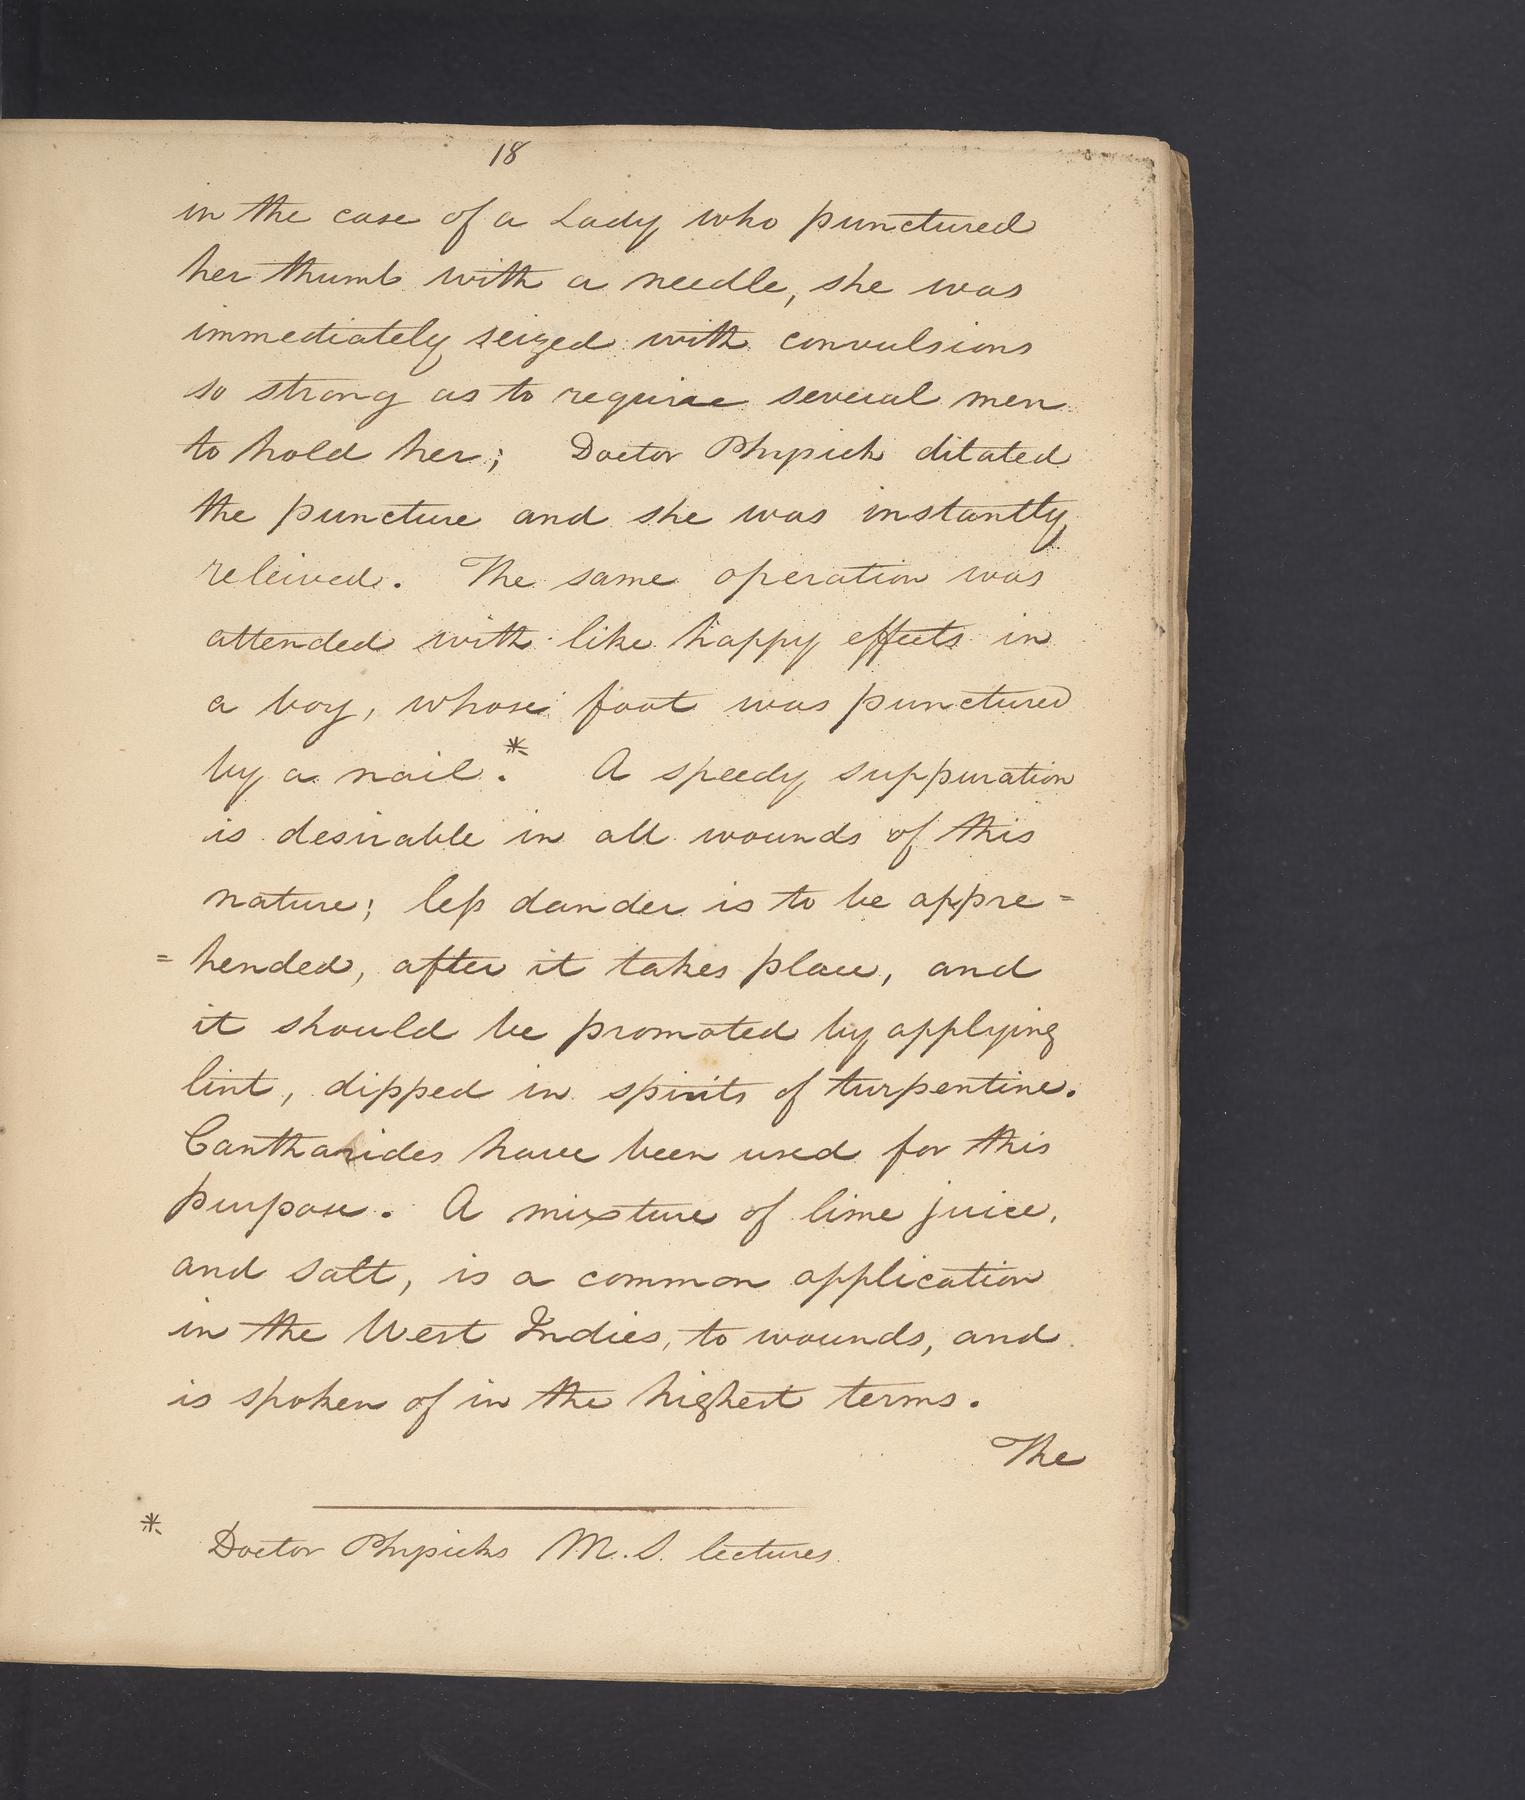 18
in the case of a Lady who punctured
her thumb with a needle, she was
immediately seized with convulsions
so strong as to require several men
to hold her; Doctor Physick dilated
the puncture and she was instantly
releived. The same operation was
attended with like happy effects in
a boy, whose foot was punctured
by a nail.* A speedy suppuration
is desirable in all wounds of this
nature; less dander is to be appre=
=hended, after it takes place, and
it should be promoted by applying
lint, dipped in spirits of turpentine.
Cantharides have been used for this
purpose. A mixture of lime juice,
and salt, is a common application
in the West Indies, to wounds, and
is spoken of in the highest terms.
The
* Doctor Physicks M.S. lectures